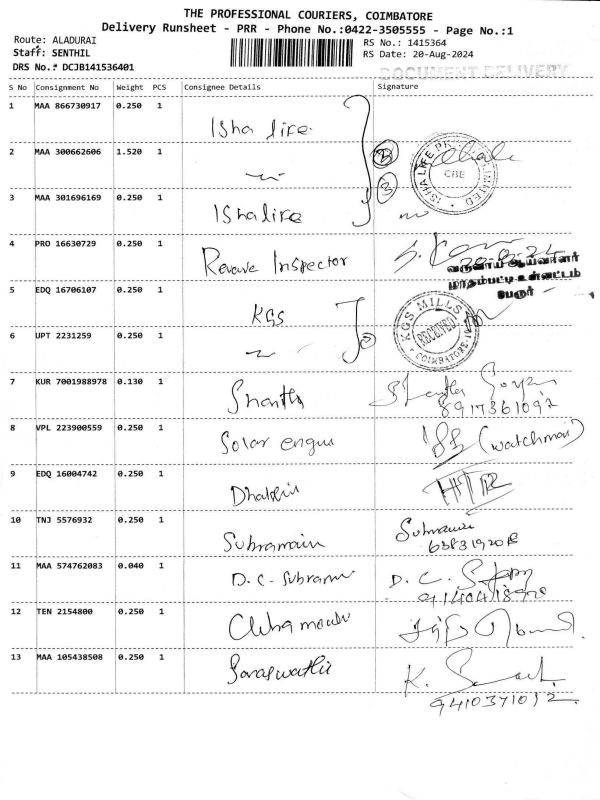 THE PROFESSIONAL COURIERS, COIMBATORE
Delivery Runsheet - PRR - Phone No.:0422-3505555 - Page No.:1
Route: ALADURAI
RS No.: 1415364
Staff: SENTHIL
RS Date: 20-Aug-2024
DRS No.: DCJB141536401
DOCUMENT DELIVERY
S No Consignment No Weight PCS Consignee Details Signature
1 MAA 866730917 0.250 1 Isha life
2 MAA 300662606 1.520 1
ISHA LIFE LIMITED CBE
3 MAA 301696169 0.250 1 Isha life
4 PRO 16630729 0.250 1 Revenue Inspector
வருவாய் ஆய்வாளர்
மாதம்பட்டி உள்வட்டம்
பேரூர்
5 EDQ 16706107 0.250 1 KGS
KGS MILLS RECEIVED COIMBATORE
6 UPT 2231259 0.250 1
7 KUR 7001988978 0.130 1 Shantha
8917361092
8 VPL 223900559 0.250 1 Solar (watchman)
9 EDQ 16004742 0.250 1
10 TNJ 5576932 0.250 1
11 MAA 574762083 0.040 1 D.C. D.C.
12 TEN 2154800 0.250 1
13 MAA 105438508 0.250 1 Saraswathi K.
9410371012